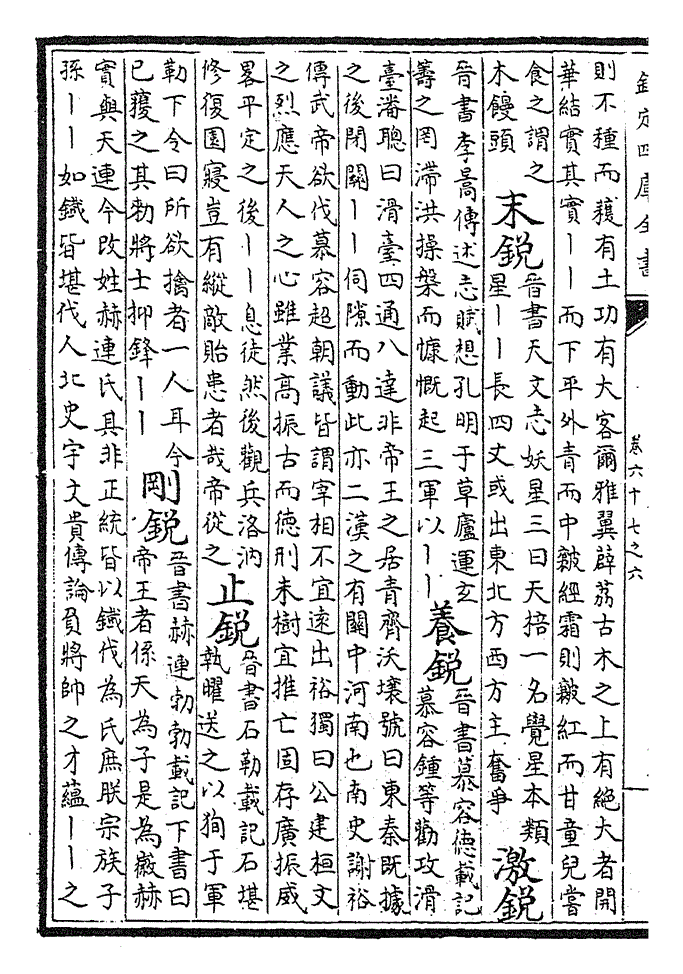 欽定四庫全書
卷六十七之六
則不種而穫有土功有大客爾雅翼薜荔古木之上有絕大者開
華結實其實丨丨而下平外青而中皺經霜則皺紅而甘童兒嘗
食之謂之
木饅頭
末鋭
晉書天文志妖星三曰天掊一名覺星本類
星丨丨長四丈或出東北方西方主奮爭
激鋭
晉書李暠傳述志賦想孔明于草廬運玄
籌之罔滯洪操槃而慷慨起三軍以丨丨
養鋭
晉書慕容德載記
慕容鍾等勸攻滑
臺潘聰曰滑臺四通八達非帝王之居青齊沃壤號曰東秦既據
之後閉關丨丨伺隙而動此亦二漢之有關中河南也南史謝裕
傳武帝欲伐慕容超朝議皆謂宰相不宜遠出裕獨曰公建桓文
之烈應天人之心雖業高振古而德刑未樹宜推亡固存廣振威
畧平定之後丨丨息徒然後觀兵洛汭
修復園寢豈有縱敵貽患者哉帝從之
止鋭
晉書石勒載記石堪
執曜送之以狥于軍
勒下令曰所欲擒者一人耳今
已獲之其勑將士抑鋒丨丨
剛鋭
晉書赫連勃勃載記下書曰
帝王者係天為子是為徽赫
實與天連今改姓赫連氏其非正統皆以鐵伐為氏庶朕宗族子
孫丨丨如鐵皆堪伐人北史宇文貴傳論負將帥之才蘊丨丨之